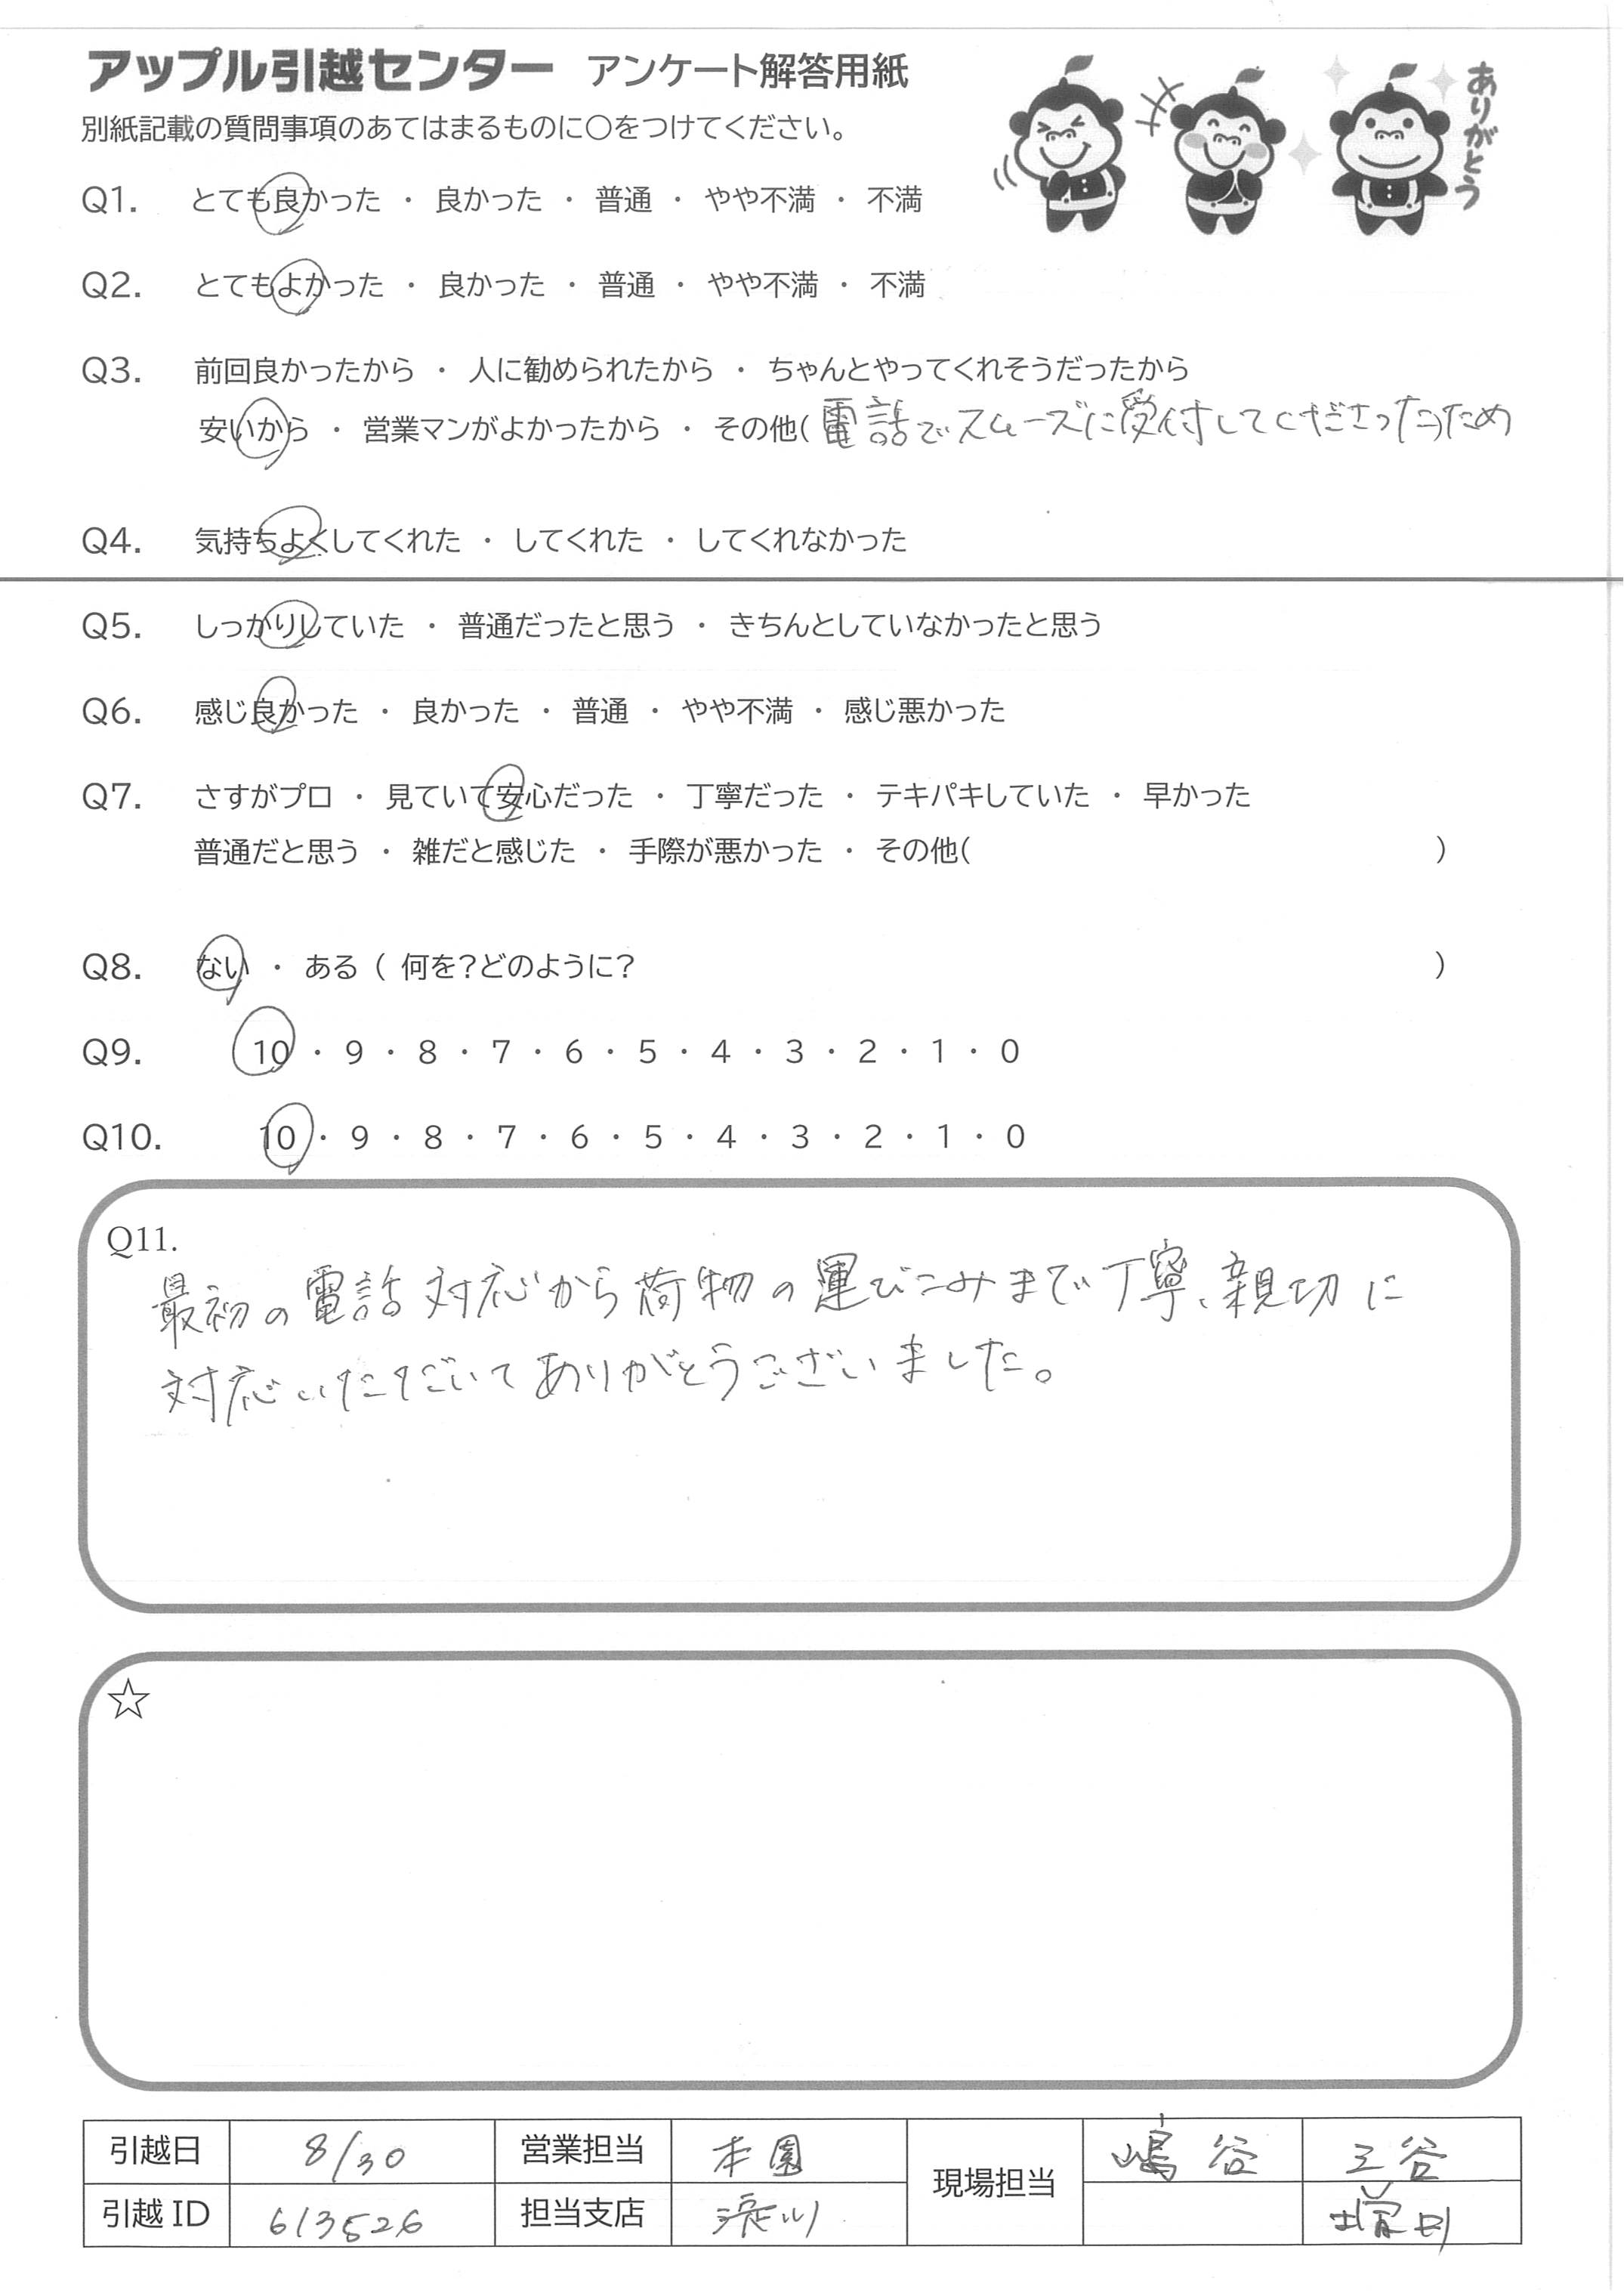 アップル引越センター アンケート解答用紙
別紙記載の質問事項のあてはまるものに○をつけてください。
ありがとう
Q1. とても良かった ・ 良かった ・ 普通 ・ やや不満 ・ 不満
Q2. とてもよかった ・ 良かった ・ 普通 ・ やや不満 ・ 不満
Q3. 前回良かったから ・ 人に勧められたから ・ ちゃんとやってくれそうだったから
安いから ・ 営業マンがよかったから ・ その他( 電話でスムーズに受付してくださった)ため
Q4. 気持ちよくしてくれた ・ してくれた ・ してくれなかった
Q5. しっかりしていた ・ 普通だったと思う ・ きちんとしていなかったと思う
Q6. 感じ良かった ・ 良かった ・ 普通 ・ やや不満 ・ 感じ悪かった
Q7. さすがプロ ・ 見ていて安心だった ・ 丁寧だった ・ テキパキしていた ・ 早かった
普通だと思う ・ 雑だと感じた ・ 手際が悪かった ・ その他( )
Q8. ない ・ ある ( 何を?どのように? )
Q9. 10 ・ 9 ・ 8 ・ 7 ・ 6 ・ 5 ・ 4 ・ 3 ・ 2 ・ 1 ・ 0
Q10. 10 ・ 9 ・ 8 ・ 7 ・ 6 ・ 5 ・ 4 ・ 3 ・ 2 ・ 1 ・ 0
Q11.
最初の電話対応から荷物の運びこみまで丁寧、親切に
対応いただいてありがとうございました。
☆
引越日 8/30 営業担当 本園 現場担当 嶋谷 三谷
引越ID 613526 担当支店 淀川